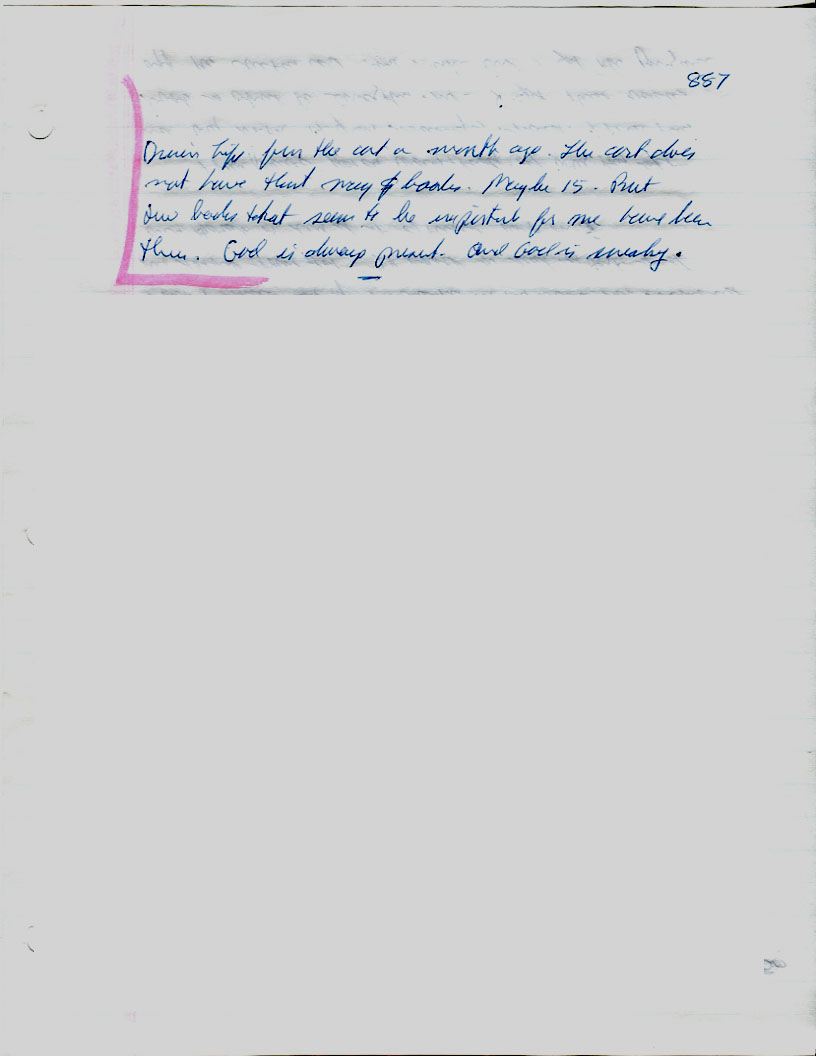 887
from the cart a month ago. The cart does
not have that many books. Maybe 15. But
two books that seem to be important for me have been
there. God is always present. And God is sneaky.